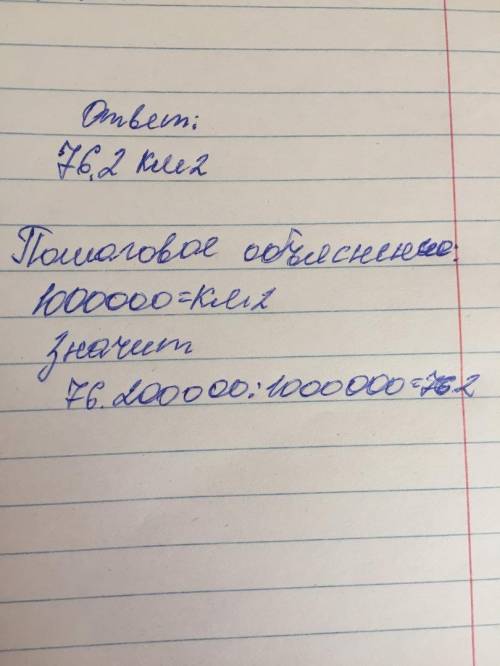 Ответ:
76,2 км2
Пошаговое объяснение:
1000000=км2
Значит
76.200000:1000000=76.2